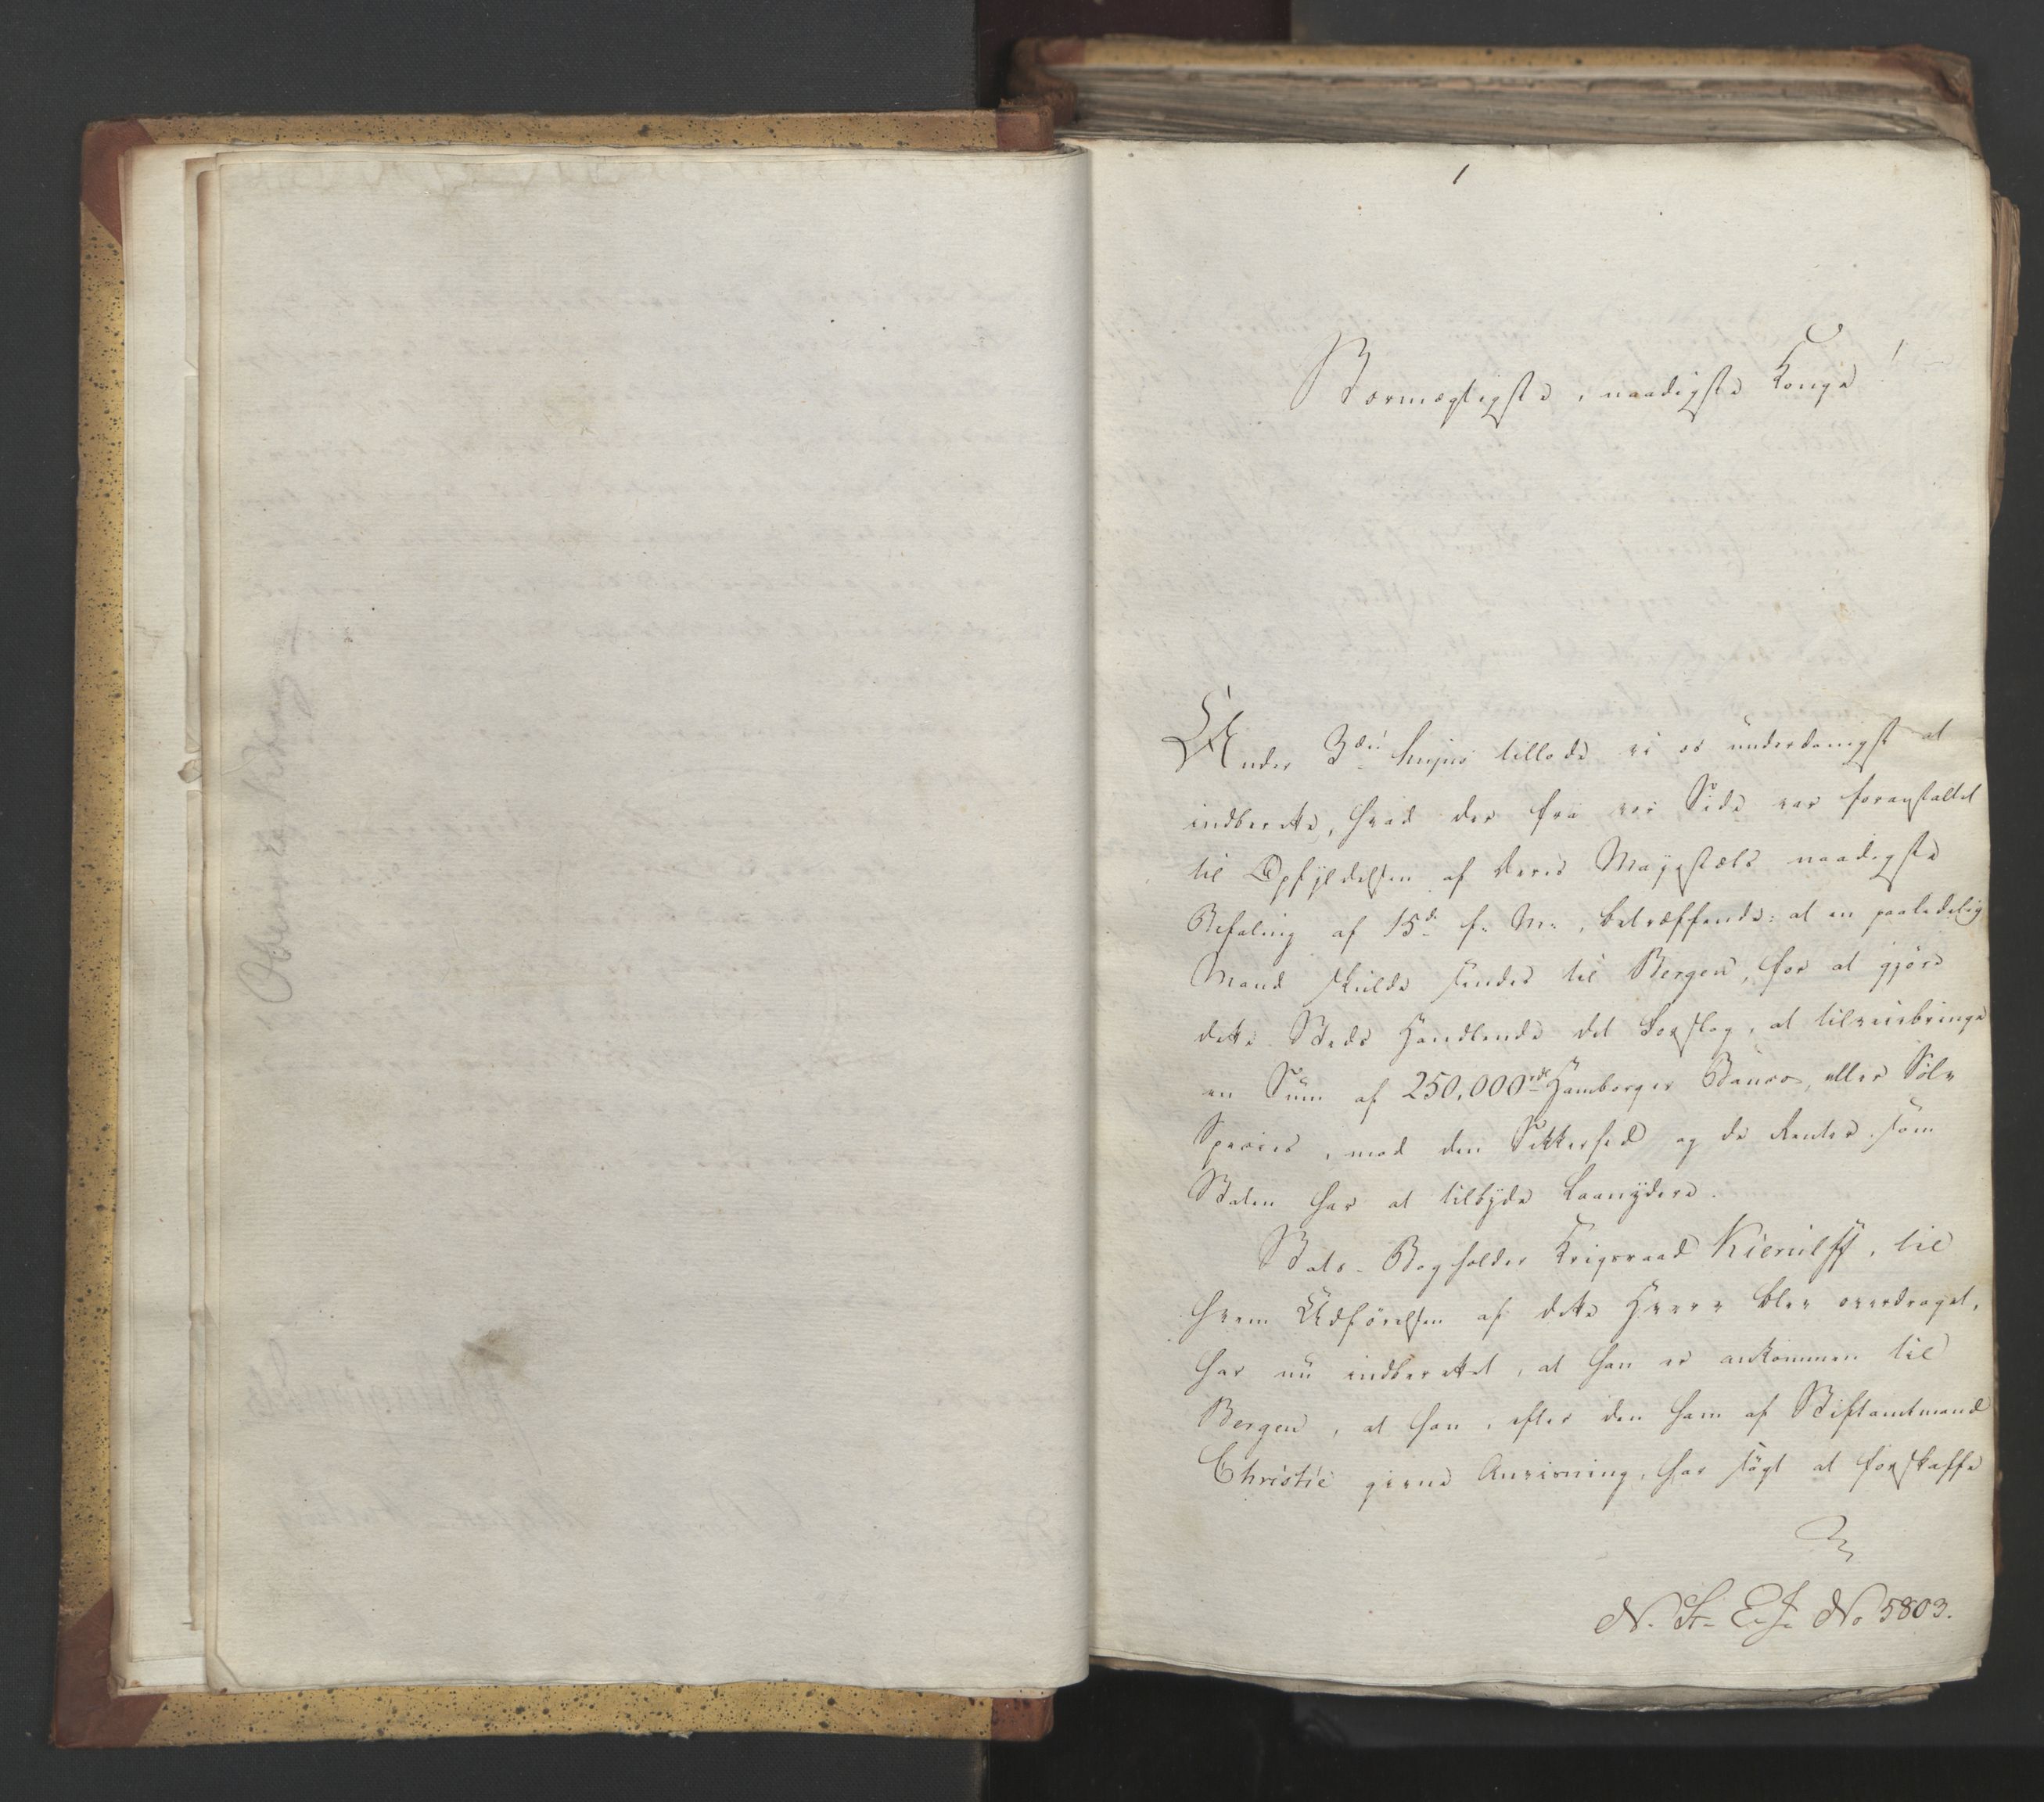 1
Stormægtigste, naadigste Konge!
Under 3die hujus tillode vi os underdanigst at
indberette, hvad der fra vor Side var foranstaltet
til Opfyldelsen af Deres Majestæts naadigste
Befaling af 15de f. M., betræffende: at en paalidelig
Mand skulde sendes til Bergen, for at gjöre
dette Steds Handlende det Forslag, at tilveiebringe
en Sum af 250,000 rdr Hamborger Banco, eller Sölv
Species, mod den Sikkerhed og de Renter som
Staten har at tilbyde Laanydere.
Stats-Bogholder Krigsraad Kierulff, til
hvem Udförelsen af dette Hverv blev overdraget,
har nu indberettet, at han er ankommen til
Bergen, at han, efter den ham af Stiftamtmand
Christie givne Anvisning, har sögt at forskaffe
N. St. E. J. No 5803.